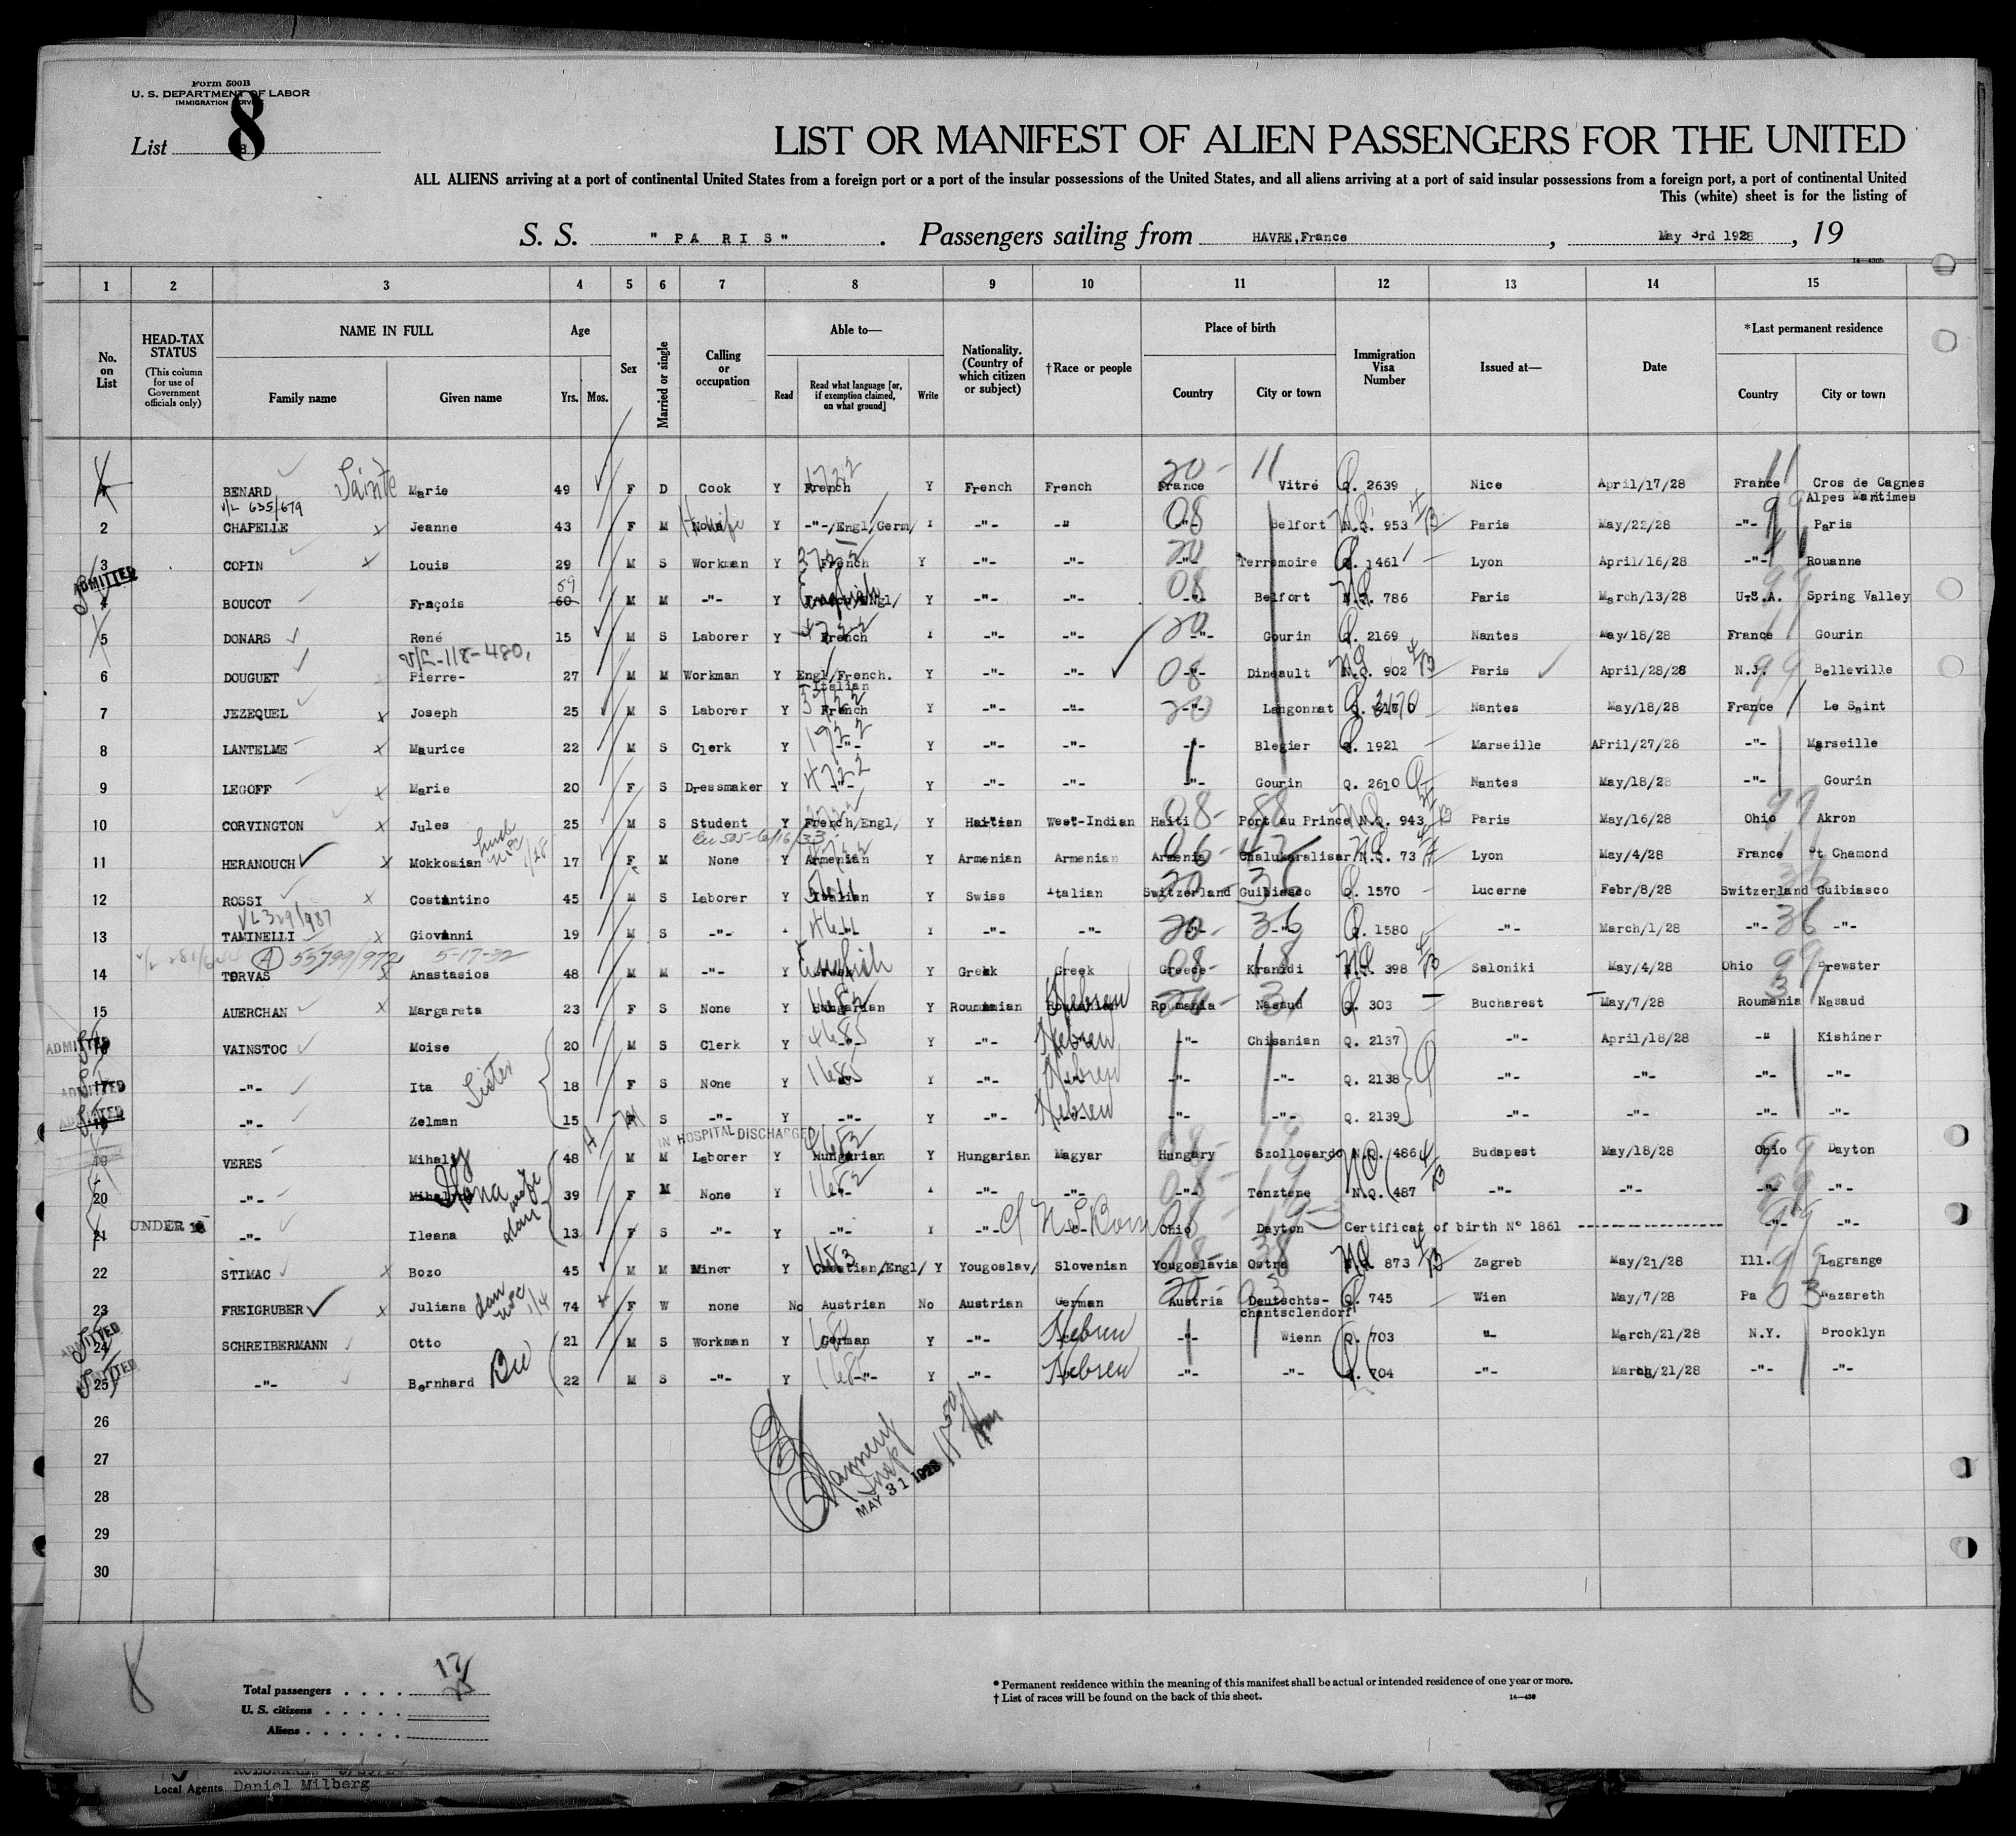 Form 500B
U. S. DEPARTMENT OF LABOR
IMMIGRATION SERVICE
List 8
LIST OR MANIFEST OF ALIEN PASSENGERS FOR THE UNITED
ALL ALIENS arriving at a port of continental United States from a foreign port or a port of the insular possessions of the United States, and all aliens arriving at a port of said insular possessions from a foreign port, a port of continental United
This (white) sheet is for the listing of
S. S. "PARIS" . Passengers sailing from HAVRE,France , May 3rd 1928 , 19
14—430b
1 2 3 4 5 6 7 8 9 10 11 12 13 14 15
No. on List
HEAD-TAX STATUS (This column for use of Government officials only)
NAME IN FULL Family name Given name
Age Yrs. Mos.
Sex
Married or single
Calling or occupation
Able to— Read Read what language [or, if exemption claimed, on what ground] Write
Nationality. (Country of which citizen or subject)
†Race or people
Place of birth Country City or town
Immigration Visa Number
Issued at—
Date
*Last permanent residence Country City or town
BENARD Sainte Marie 49 F D Cook Y French Y French French France Vitré Q. 2639 Nice April/17/28 France Cros de Cagnes
V/L 635/679 Alpes Maritimes
2 CHAPELLE x Jeanne 43 F M Y -"-/Engl/Germ/ -"- -"- -"- Belfort N.Q. 953 Paris May/22/28 -"- Paris
3 COPIN x Louis 29 M S Workman Y French Y -"- -"- -"- Terremoire Q. 1461 Lyon April/16/28 -"- Rouanne
ADMITTED 59
4 BOUCOT François 60 M M -"- Y English Y -"- -"- -"- Belfort N.Q. 786 Paris March/13/28 U.S.A. Spring Valley
5 DONARS René 15 M S Laborer Y French -"- -"- -"- Gourin Q. 2169 Nantes May/18/28 France Gourin
V/L-118-480.
6 DOUGUET Pierre- 27 M M Workman Y Engl/French. Y -"- -"- -"- Dineault N.Q. 902 Paris April/28/28 N.J. Belleville
Italian
7 JEZEQUEL x Joseph 25 M S Laborer Y French Y -"- -"- -"- Langonnat Q. 2170 Nantes May/18/28 France Le Saint
8 LANTELME x Maurice 22 M S Clerk Y -"- Y -"- -"- -"- Blegier Q. 1921 Marseille APril/27/28 -"- Marseille
9 LEGOFF x Marie 20 F S Dressmaker Y -"- Y -"- -"- -"- Gourin Q. 2610 Nantes May/18/28 -"- Gourin
10 CORVINGTON x Jules 25 M S Student Y French/Engl/ Y Haitian West-Indian Haiti Port au Prince N.Q. 943 Paris May/16/28 Ohio Akron
11 HERANOUCH x Mokkosian 17 F M None Y Armenian Y Armenian Armenian Armenia Chalukaralisar N.Q. 73 Lyon May/4/28 France St Chamond
12 ROSSI x Costantino 45 M S Laborer Y Italian Y Swiss Italian Switzerland Guibiasco Q. 1570 Lucerne Febr/8/28 Switzerland Guibiasco
VL 329/987
13 TAMINELLI x Giovanni 19 M S -"- -"- -"- -"- -"- -"- Q. 1580 -"- March/1/28 -"- -"-
A 55799/972 5-17-32
14 TORVAS Anastasios 48 M M -"- Y English Y Greek Greek Greece Kranidi N.Q. 398 Saloniki May/4/28 Ohio Brewster
15 AUERCHAN x Margareta 23 F S None Y Hungarian Y Roumanian Hebrew Roumania Nasaud Q. 303 Bucharest May/7/28 Roumania Nasaud
ADMITTED VAINSTOC Moise 20 M S Clerk Y -"- Y -"- Hebrew -"- Chisanian Q. 2137 -"- April/18/28 -"- Kishiner
ADMITTED 17 -"- Ita Sister 18 F S None Y -"- -"- Hebrew -"- -"- Q. 2138 -"- -"- -"- -"-
ADMITTED -"- Zelman 15 M S -"- Y -"- Y -"- Hebrew -"- -"- Q. 2139 -"- -"- -"- -"-
IN HOSPITAL DISCHARGED
19 VERES Mihaly 48 M M Laborer Y Hungarian Y Hungarian Magyar Hungary Szollosardo N.Q. 486 Budapest May/18/28 Ohio Dayton
20 -"- Ilona wife 39 F M None Y -"- -"- -"- -"- Tenztene N.Q. 487 -"- -"- -"- -"-
21 UNDER 16 -"- Ileana dau 13 F S -"- Y -"- -"- Ohio Dayton Certificat of birth N° 1861 -"- -"-
22 STIMAC x Bozo 45 M M Miner Y Croatian/Engl/ Y Yougoslav/ Slovenian Yougoslavia Ostra N.Q. 873 Zagreb May/21/28 Ill. Lagrange
23 FREIGRUBER x Juliana 74 F W none No Austrian No Austrian German Austria Deutschts- Q. 745 Wien May/7/28 Pa Nazareth
chantsclendorf
ADMITTED 24 SCHREIBERMANN Otto 21 M S Workman Y German Y -"- Hebrew -"- Wienn Q. 703 "- March/21/28 N.Y. Brooklyn
ADMITTED 25 -"- Bernhard Bro 22 M S -"- Y -"- Y -"- Hebrew -"- -"- Q. 704 -"- March/21/28 -"- -"-
26
27
28
29
30
Insp
MAY 31 1928
8
Total passengers
U. S. citizens
Aliens
* Permanent residence within the meaning of this manifest shall be actual or intended residence of one year or more.
† List of races will be found on the back of this sheet.
14—430
Local Agents Daniel Milberg